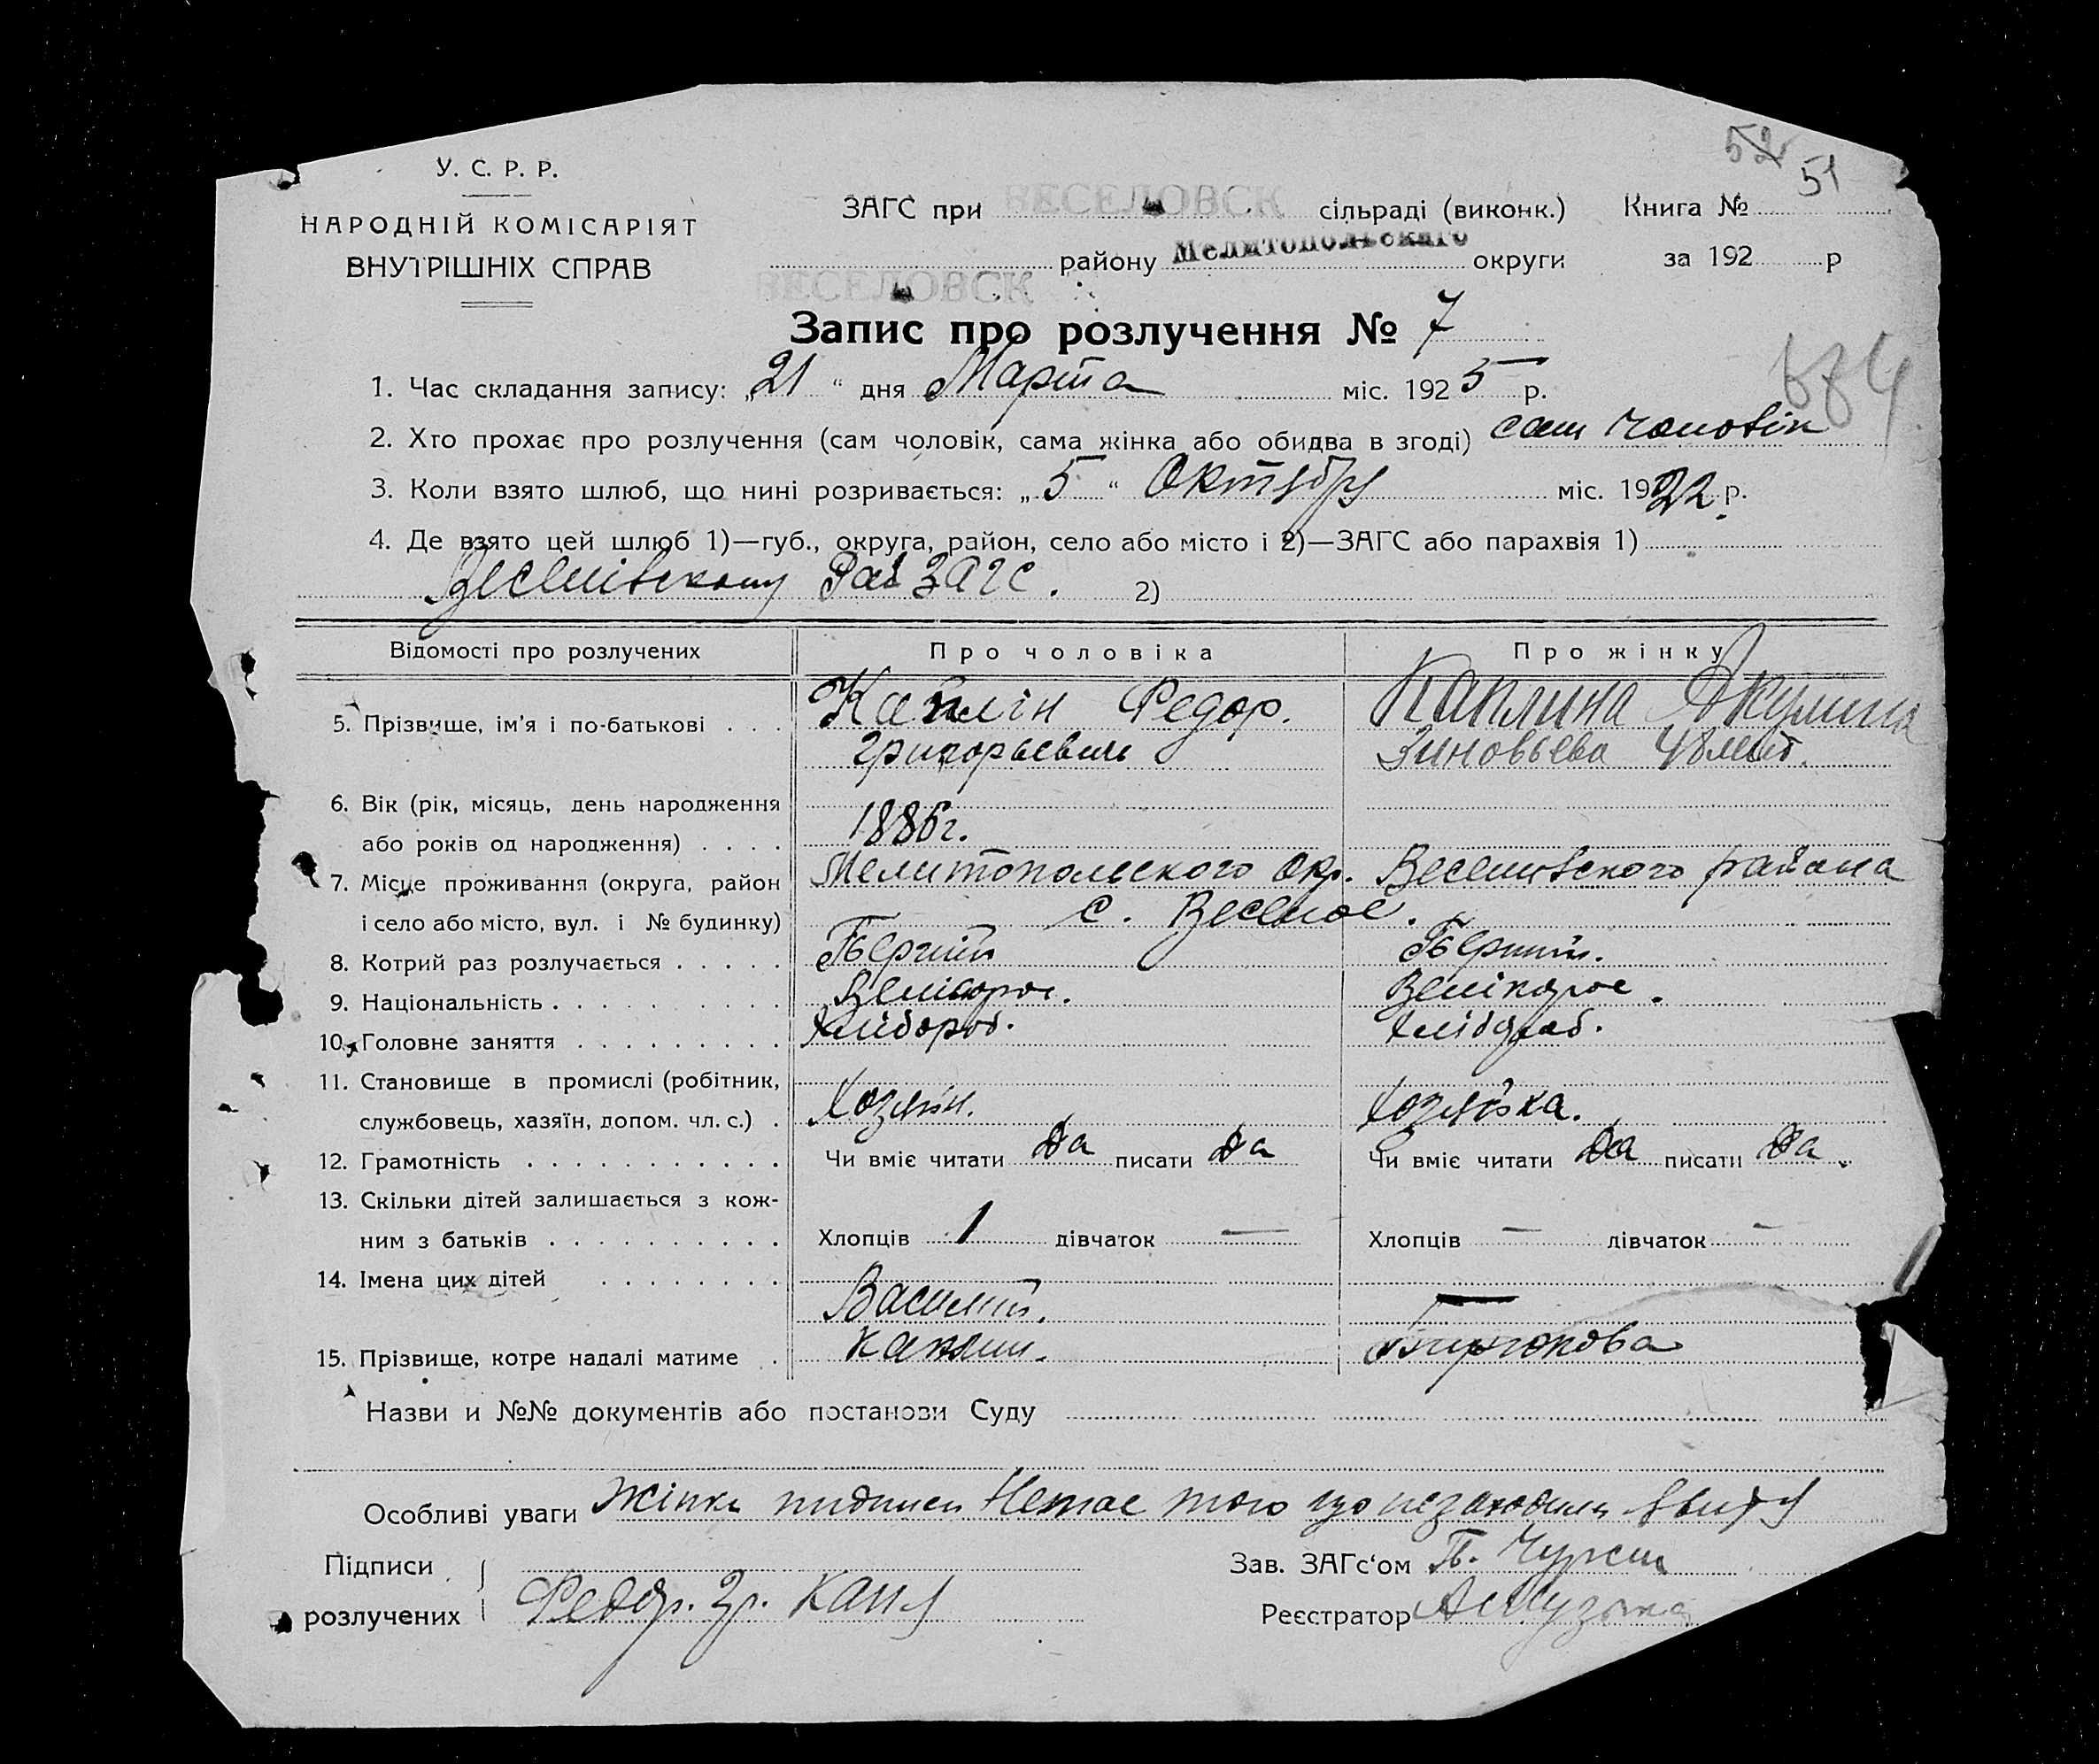 52 51
У. С. Р. Р.
НАРОДНІЙ КОМІСАРІЯТ
ВНУТРІШНІХ СПРАВ
ЗАГС при ВЕСЕЛОВСК сільраді (виконк.) Книга №
ВЕСЕЛОВСК району Мелитопольскаго округи за 192 р
Запис про розлучення № 7
1. Час складання запису: „21“ дня Марта міс. 1925 р.
2. Хто прохає про розлучення (сам чоловік, сама жінка або обидва в згоді) сам чоловік
3. Коли взято шлюб, що нині розривається: „5“ Октября міс. 1922 р.
4. Де взято цей шлюб 1)—губ., округа, район, село або місто і 2)—ЗАГС або парахвія 1)
Веселівскому Рай ЗАГС. 2)
Відомості про розлучених Про чоловіка Про жінку
5. Прізвище, ім'я і по-батькові . . . Каплін Федор. Каплина Акулина
Григорьевич Зиновьева 48 лет.
6. Вік (рік, місяць, день народження
або років од народження) . . . . 1886 г.
7. Місце проживання (округа, район Мелитопольского окр. Веселивского района
і село або місто, вул. і № будинку) с. Веселое.
8. Котрий раз розлучається . . . . . Первий Первий.
9. Національність . . . . . . . . . . Велікорос. Велікорос.
10. Головне заняття . . . . . . . . . Хлібороб. Хлібороб.
11. Становище в промислі (робітник,
службовець, хазяїн, допом. чл. с.) . Хозяїн. Хозяйка.
12. Грамотність . . . . . . . . . . . Чи вміє читати да писати да Чи вміє читати да писати да.
13. Скільки дітей залишається з кож-
ним з батьків . . . . . . . . . . Хлопців 1 дівчаток — Хлопців — дівчаток -
14. Імена цих дітей . . . . . . . .
Василий. —
15. Прізвище, котре надалі матиме . Каплин. Бирюкова
Назви и №№ документів або постанови Суду
Особливі уваги Жінки пидписи Немає того що
Підписи Зав. ЗАГс‘ом П.
розлучених Федор. Гр. Капл Реєстратор